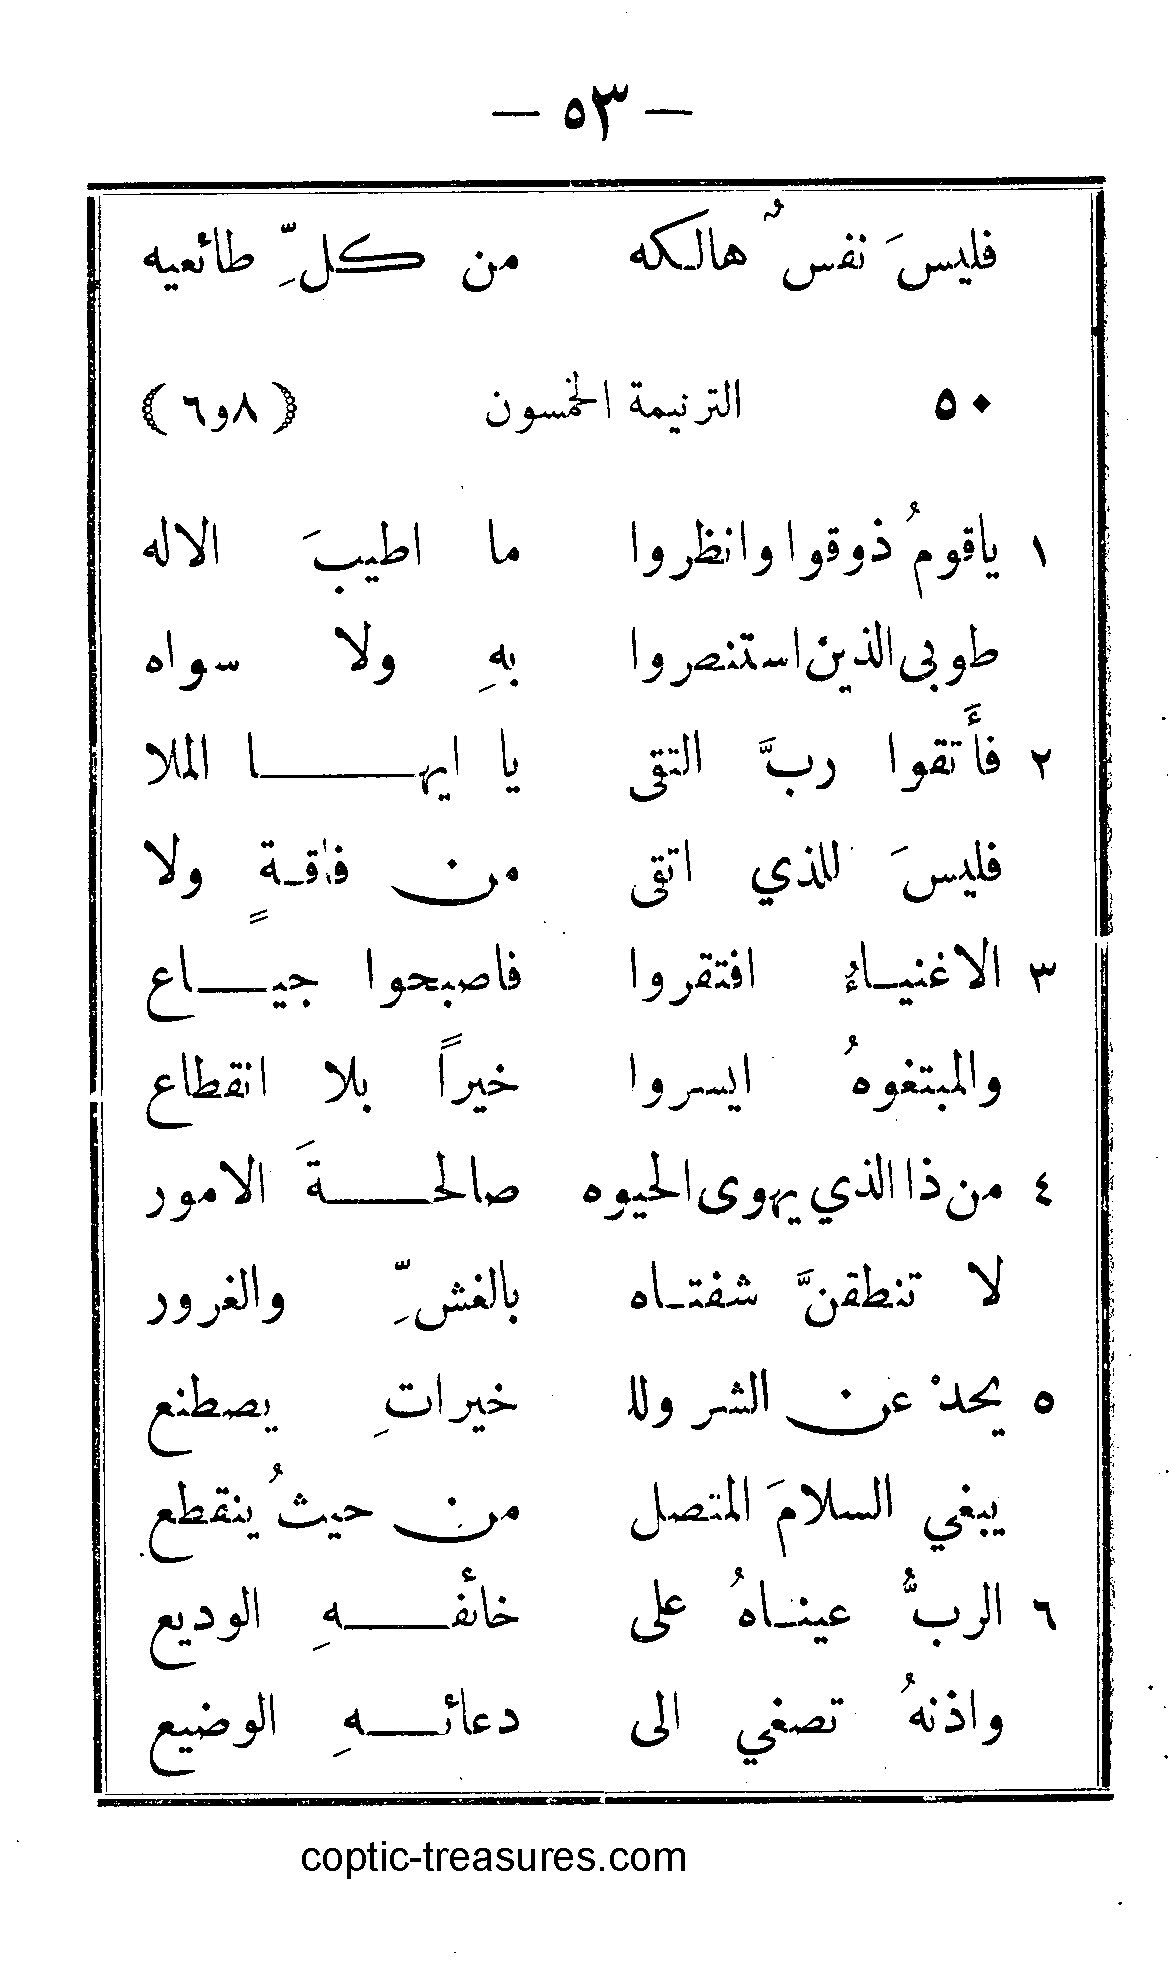 — ٥٣ —
فليسَ نفسٌ هالكه من كلِّ طائعيه
٥٠ الترنيمة الخمسون (٨ و٦)
١ ياقومُ ذوقوا وانظروا ما اطيبَ الاله
طوبى الذين استنصروا بهِ ولا سواه
٢ فأَتقوا ربَّ التقى يا ايهـا الملا
فليسَ للذي اتقى من فاقـةٍ ولا
٣ الاغنيـاءُ افتقروا فاصبحوا جيـاع
والمبتغوهُ ايسروا خيراً بلا انقطاع
٤ من ذا الذي يهوى الحيوه صالحـةَ الامور
لا تنطقنَّ شفتـاه بالغشِّ والغرور
٥ يحدْ عن الشر وللـ خيراتِ يصطنع
يبغي السلامَ المتصل من حيثُ ينقطع
٦ الربُّ عينـاهُ على خائفـهِ الوديع
واذنهُ تصغي الى دعائـهِ الوضيع
coptic-treasures.com